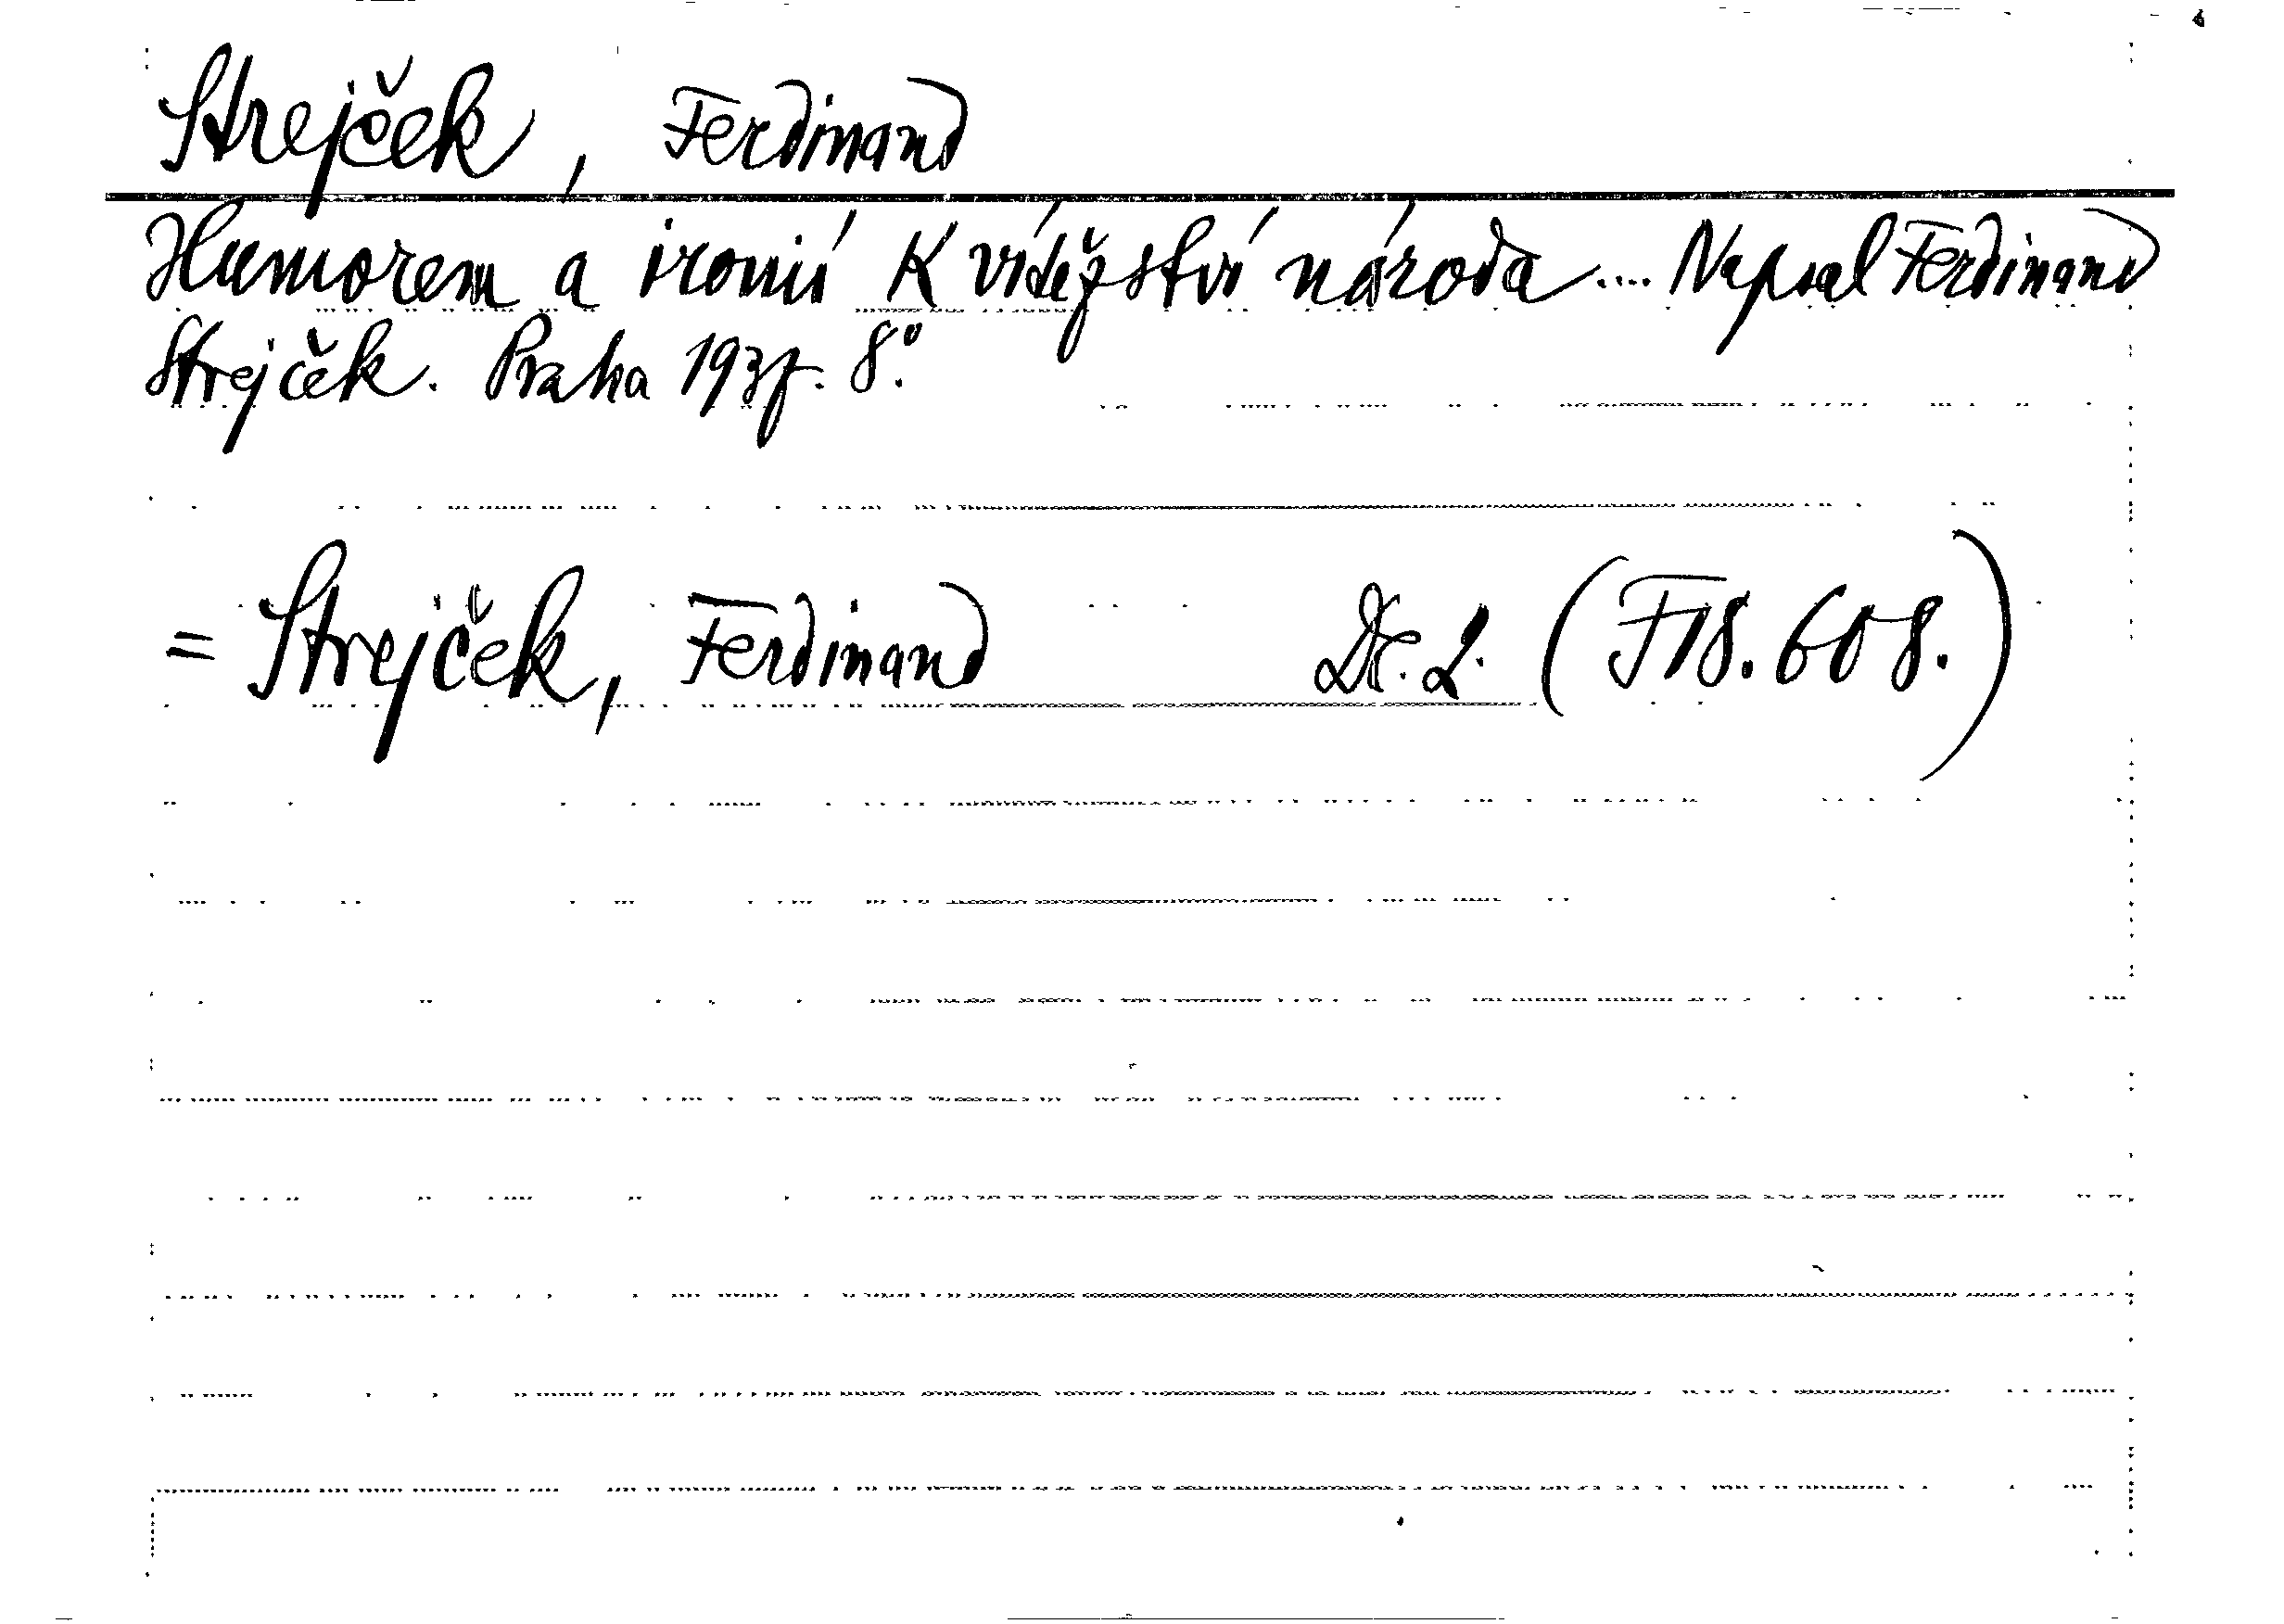 Strejček, Ferdinand
Humorem a ironií k vítězství národa.... Napsal Ferdinand
Strejček. Praha 1937. 8°.
= Strejček, Ferdinand Dr. 2. (F18.608.)